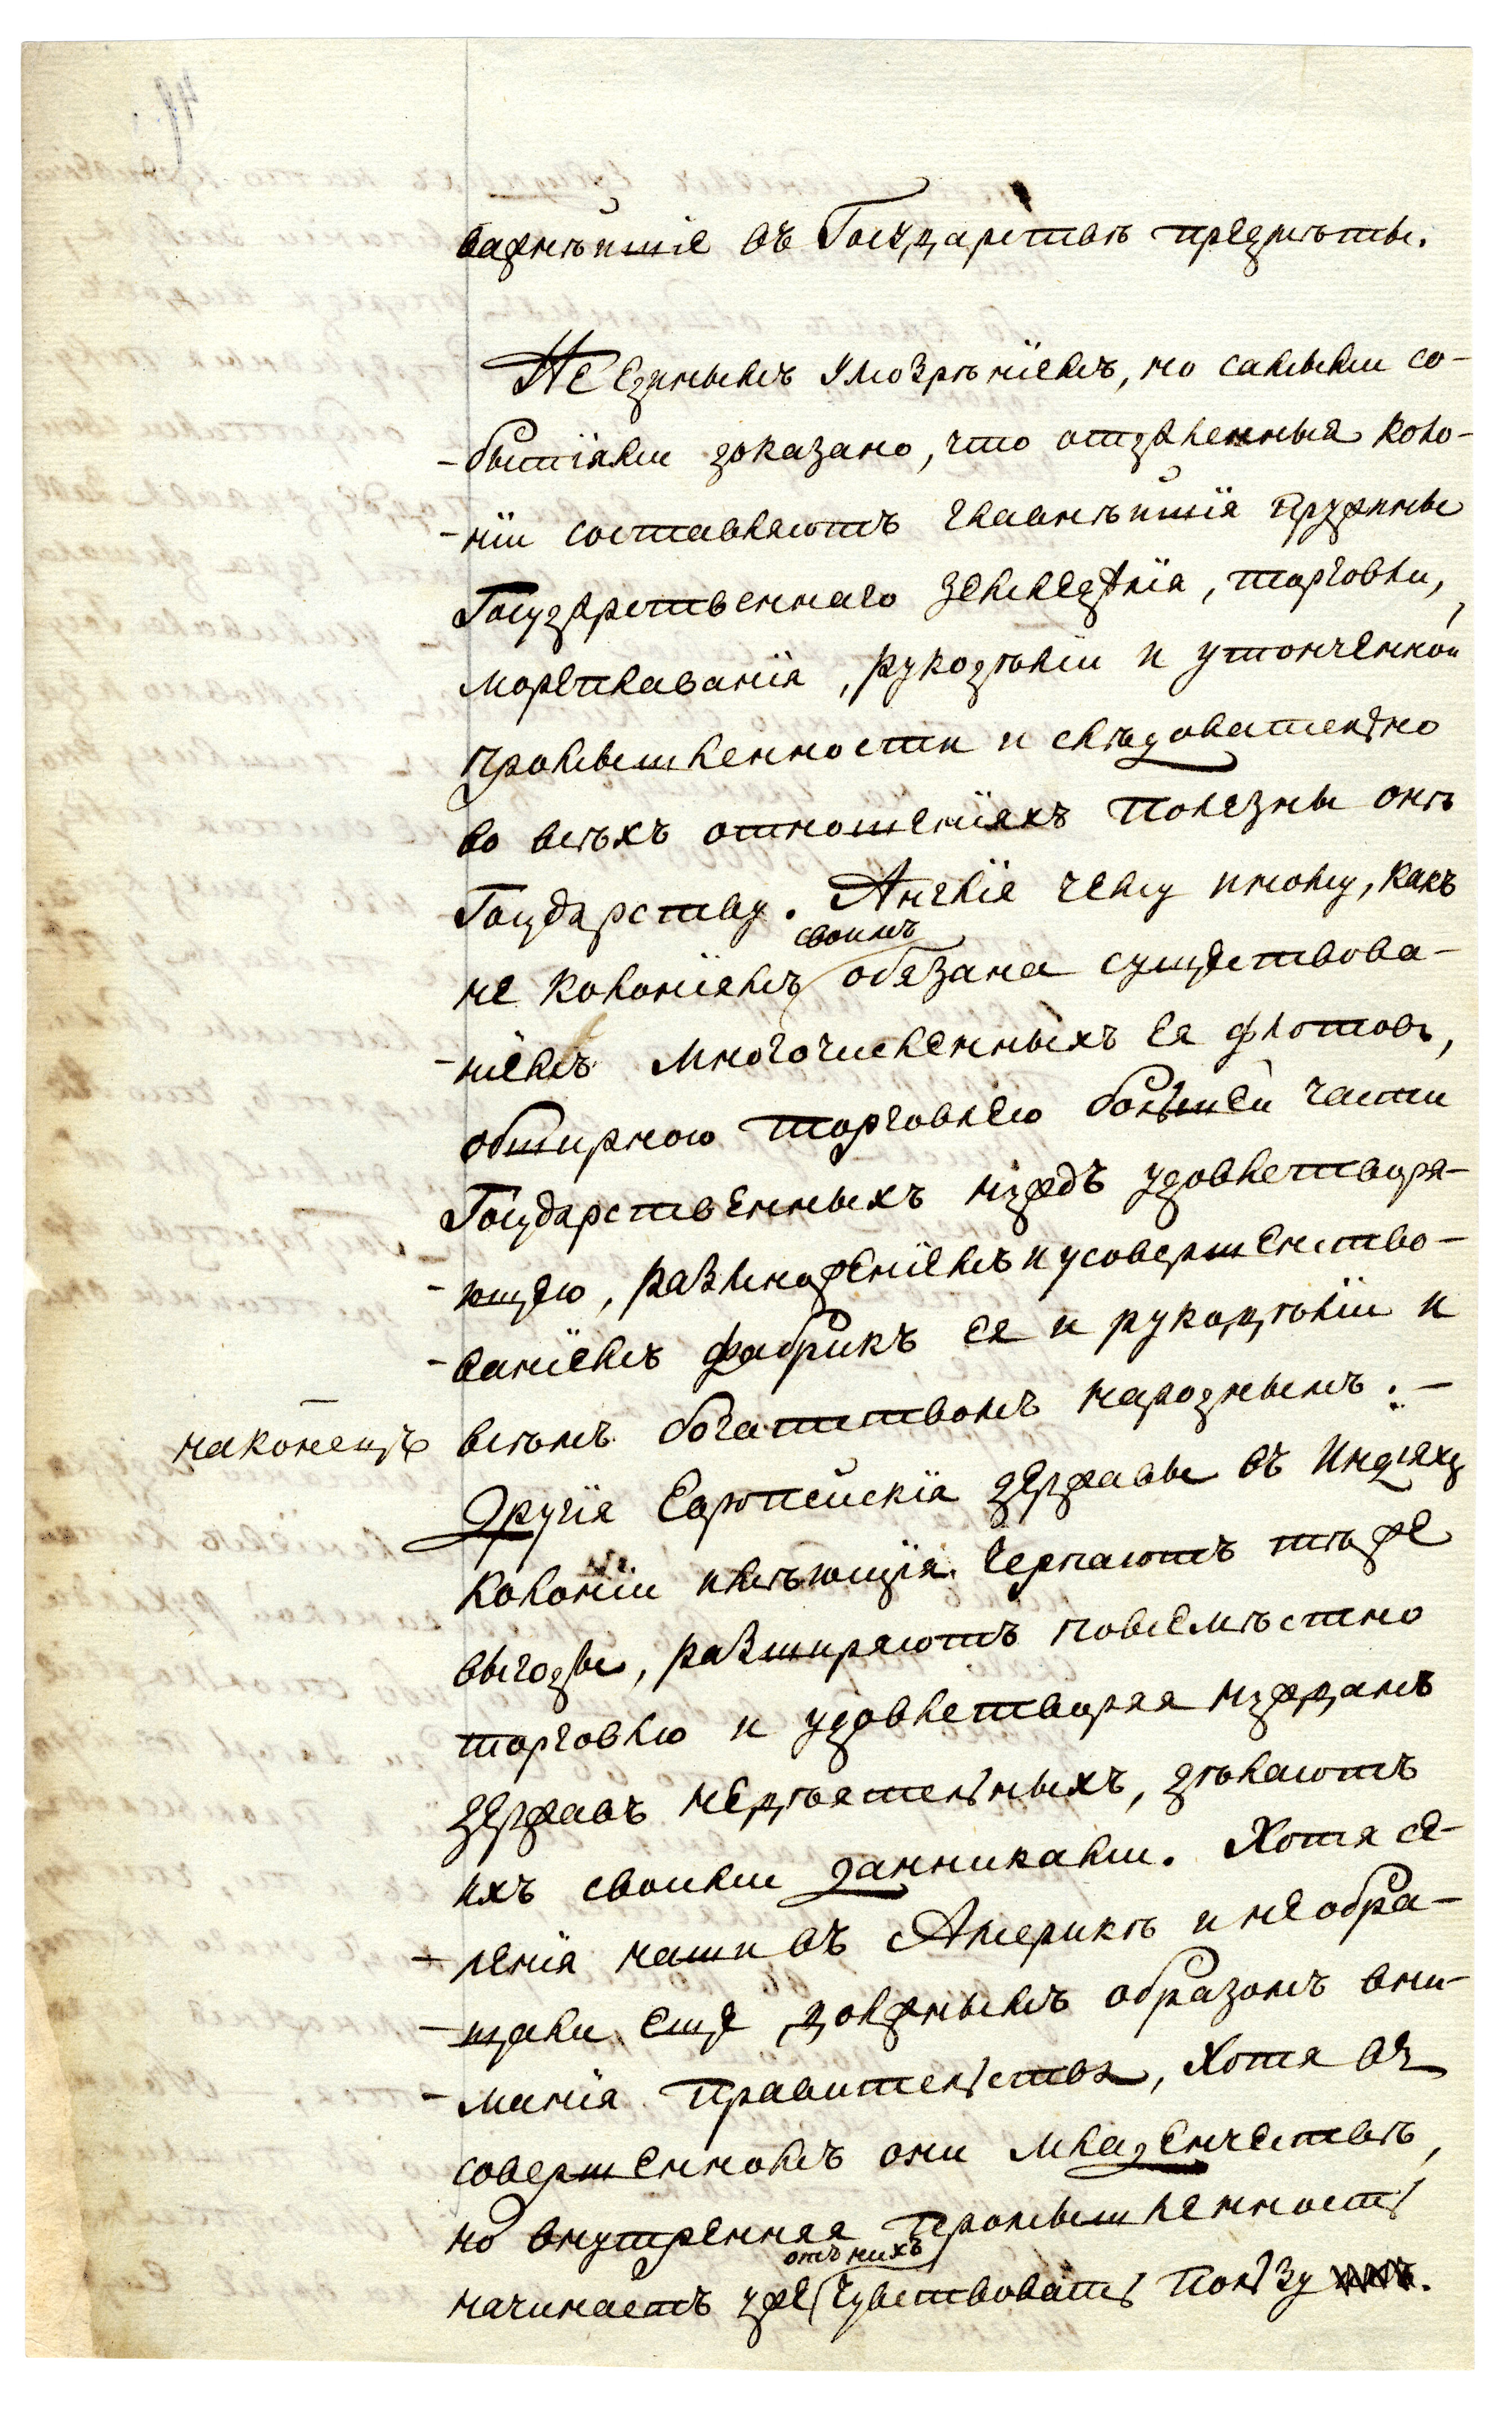 важнѣйшіе въ Государствѣ предмѣты.
Не единымъ умозрѣніемъ, но самыми со-
-бытіями доказано, что отдаленныя коло-
-ніи составляютъ главнѣйшія пружины
Государственнаго земледѣлія, торговли,
мореплаванія, рукодѣлій и утонченной
промышленности и слѣдовательно
во всѣхъ отношеніяхъ полезны онѣ
Государству. Англія чему иному, какъ
своимъ
не колоніямъ обязана существова-
-ніемъ многочисленныхъ ея флотовъ,
обширною торговлею большей части
Государственныхъ нуждъ удовлетворя-
-ющею, размноженіемъ и усовершенство-
-ваніемъ фабрикъ ея и рукодѣлій и
наконецъ всѣмъ богатствомъ народнымъ. –
Другія Европейскія державы въ Индіяхъ
колоніи имѣющія черпаютъ тѣ же
выгоды, разширяютъ повсемѣстно
торговлю и удовлетворяя нуждамъ
державъ недѣятельныхъ, дѣлаютъ
ихъ своими данниками. Хотя се-
-ленія наши въ Америкѣ и не обра-
-щали еще должнымъ образомъ вни-
-манія правительства, хотя въ
совершенномъ они младенчествѣ,
но внутренняя промышленность
отъ нихъ
начинаетъ уже чувствовать пользу.